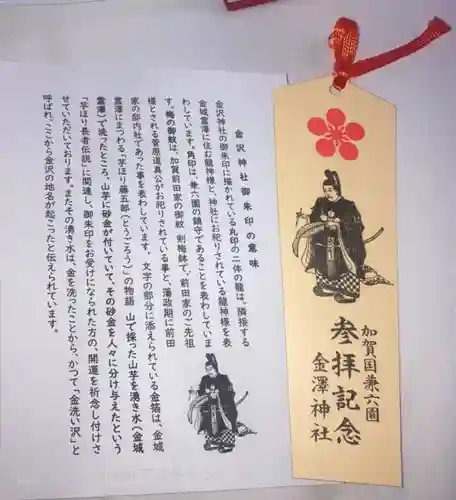 金沢神社御朱印の意味
金沢神社の御朱印に描かれている丸印の二体の龍は、隣接する
金城霊澤に住む龍神様と、神社にお祀りされている龍神様を表
わしています。角印は、兼六園の鎮守であることを表わしていま
す。梅の御紋は、加賀前田家の御紋 剣梅鉢で、前田家のご先祖
様とされる菅原道真公がお祀りされている事と、藩政期に前田
家の邸内社であった事を表わしています。文字の部分に添えられている金箔は、金城
霊澤にまつわる「芋ほり藤五郎(とうごろう)」の物語 山で採った山芋を湧き水(金城
霊澤)で洗ったところ、山芋に砂金が付いていて、その砂金を人々に分け与えたという
「芋ほり長者伝説」に関連し、御朱印をお受けになられた方の、開運を祈念し付けさ
せていただいております。またその湧き水は、金を洗ったことから、かつて「金洗い沢」と
呼ばれ、ここから金沢の地名が起こったと伝えられています。
加賀国兼六園
参拝記念
金澤神社